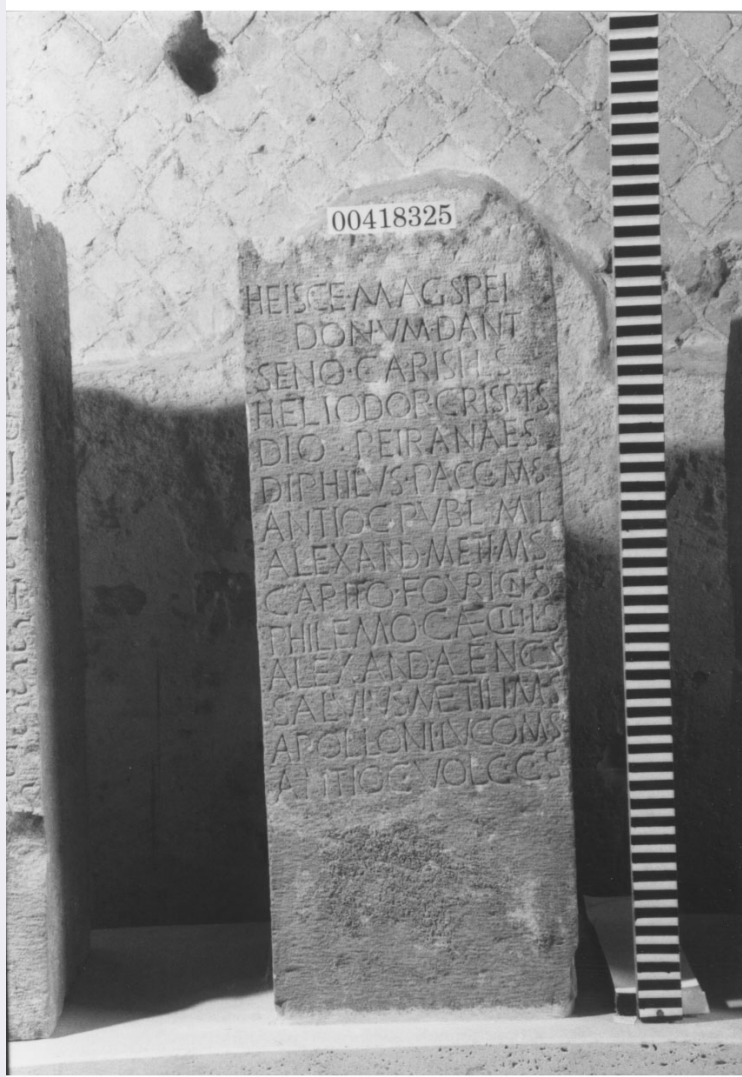 00418325
HEISCE·MAG·SPEI
DONVM·DANT
SENO·CARISI·L·S
HELIODOR·CRISPI·S
DIO·PETRANAE·S
DIPHILVS·PACC·M·S
ANTIOC·PVBL·M·L
ALEXAND·METI·M·S
CAPITO·FOVRI·C·S
PHILEMO·CAECILI·L·S
ALEXAND·A·ENC·S
SALVIUS·METILI·M·S
APOLLONI·LVCO·M·S
ANTIOC·VOLC·C·S